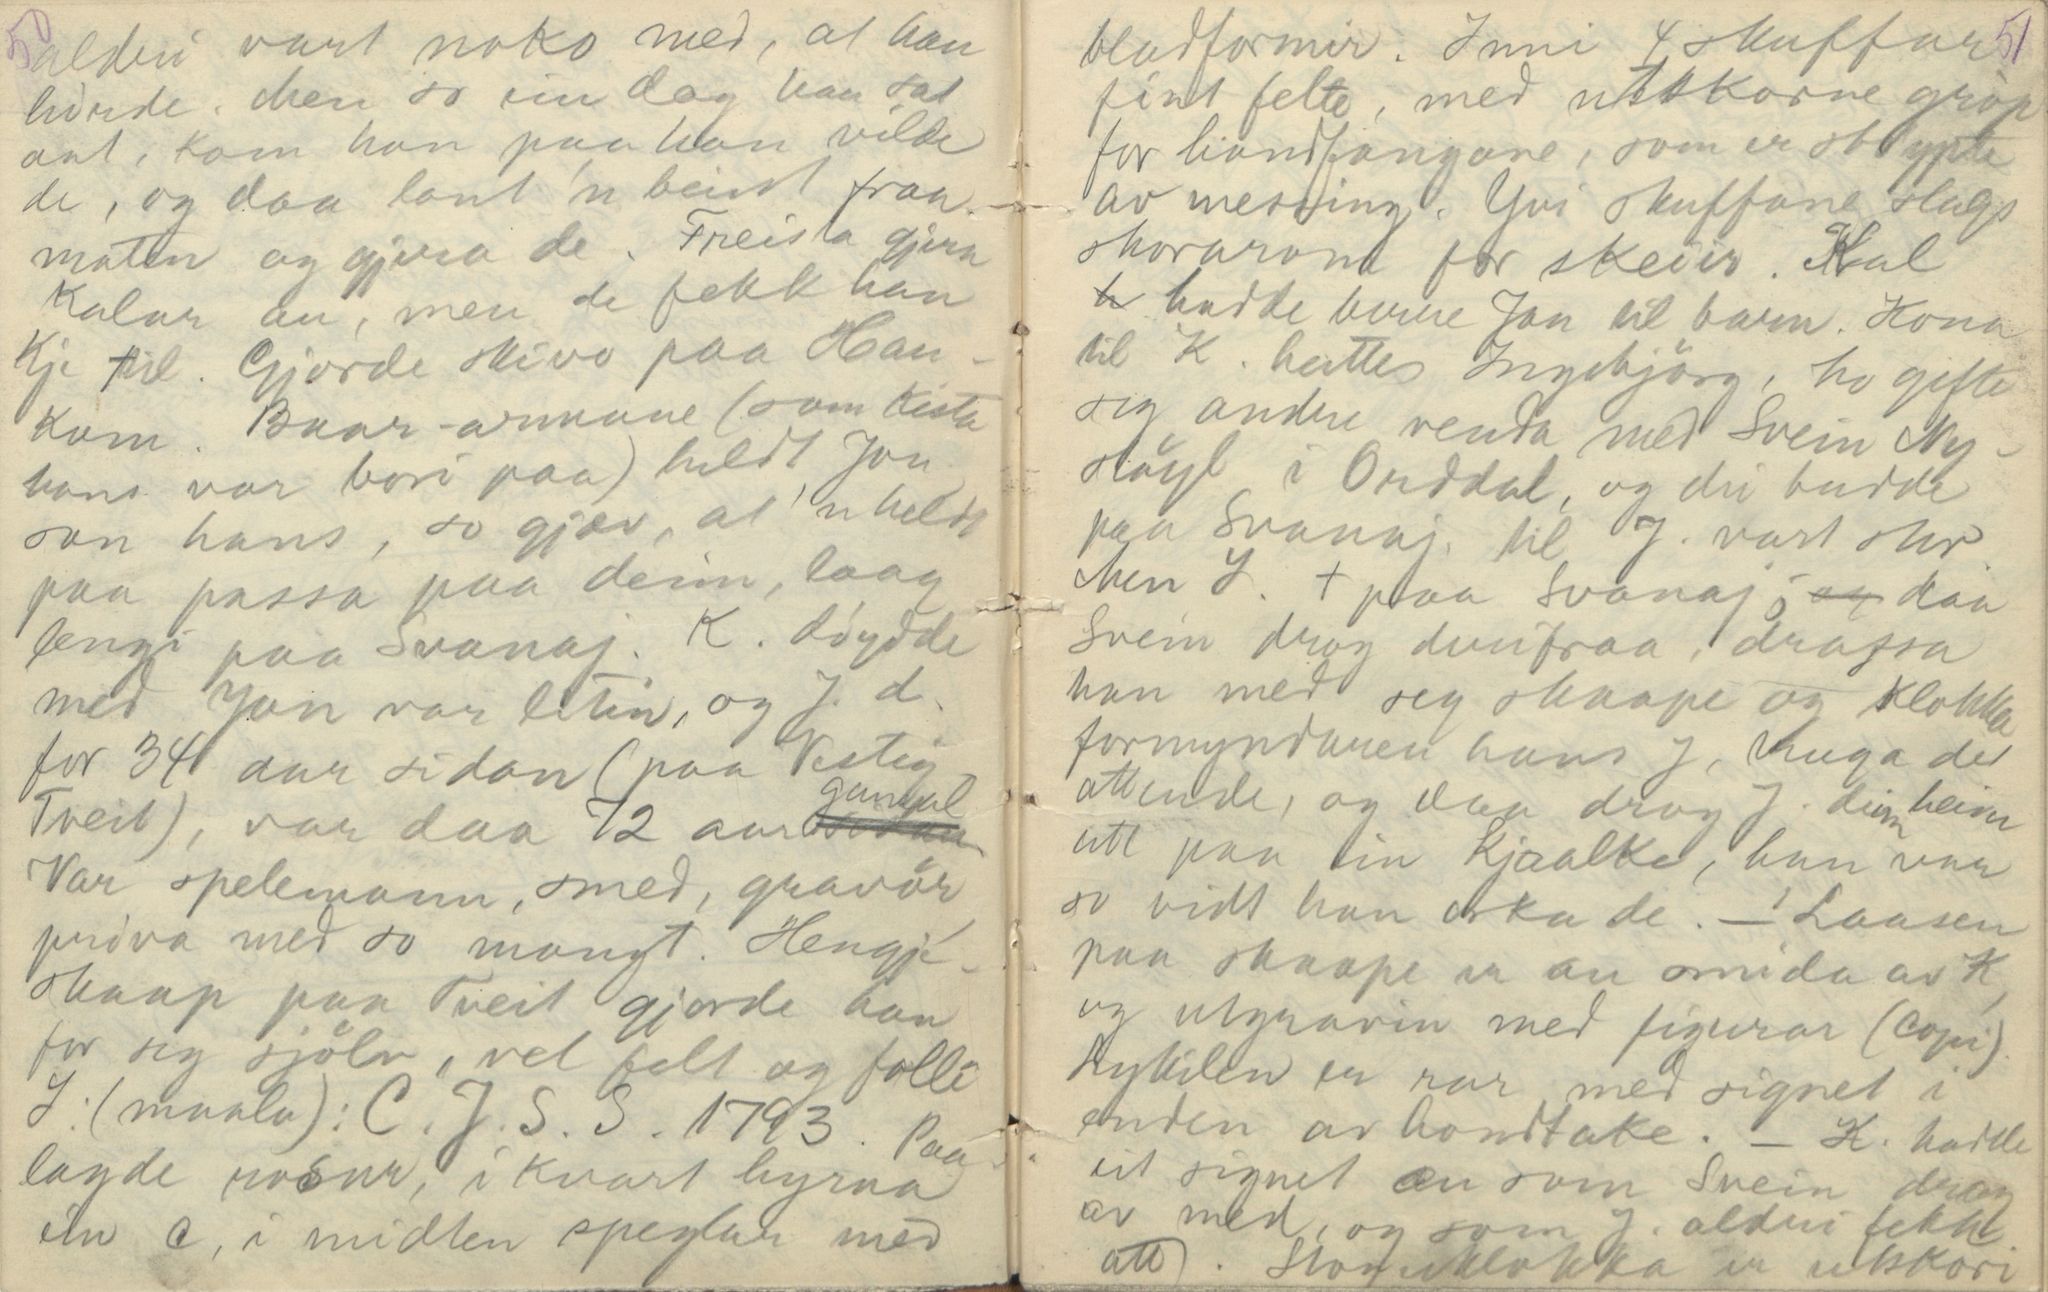 50
aldri vart noko med, at han
hørde. Men so ein dag han sat
aat, kom han paa han vilde
de, og daa lant 'n beint fraa
maten og gjøra de. Freista gjøra
Kalar au, men de fekk han
kje til. Gjorde skivo paa Hau-
kom. Baar-armane (som kista
hans var bori paa) heldt Jon
son hans, so gjæv, at 'n heldt
paa passa paa deim, laag
lengi paa Svanaj. K. døydde
med Jon var litin, og J. d.
for 34 aar sidan (paa Vestig.
Tveit), var daa 72 aar gamal
Var spelemann, smed, gravör
prøva med so mangt. Hengje-
skaap paa Tveit gjorde han
for seg sjölv, vel felt og folli
I: (maala): C. J. S. S. 1793. Paa
lagde rosur, i kvart hyrna
ein C, i midten speglar med
51
bladformir. Inni 4 skuffur
fint felte, med utskorne grøp
for handfangane, som er støypte
av messing. Yvi skuffane slags
skorarond for skeiir. Kal
hadde berre Jon til barn. Kona
til K. heittes Ingebjörg, ho gifte
seg andre venda med Svein Ny-
støyl i Orddal, og dei budde
paa Svanaj. til J. vart stor
Men I. † paa Svanaj; og daa
Svein drog derifraa, drassa
han med seg skaape og klokka
formyndaren hans J, truga det
attende, og daa drog J. deim heim
att paa ein kjaalke, han var
so vidt han orka de. – Laasen
paa skaape er au smida av K,
og utgravin med figurar (copi).
Lykilen er rar med signet i
enden av handtake. – K. hadde
eit signet au som Svein drog
av med, og som J. aldri fekk
att). Stovuklokka er utskori